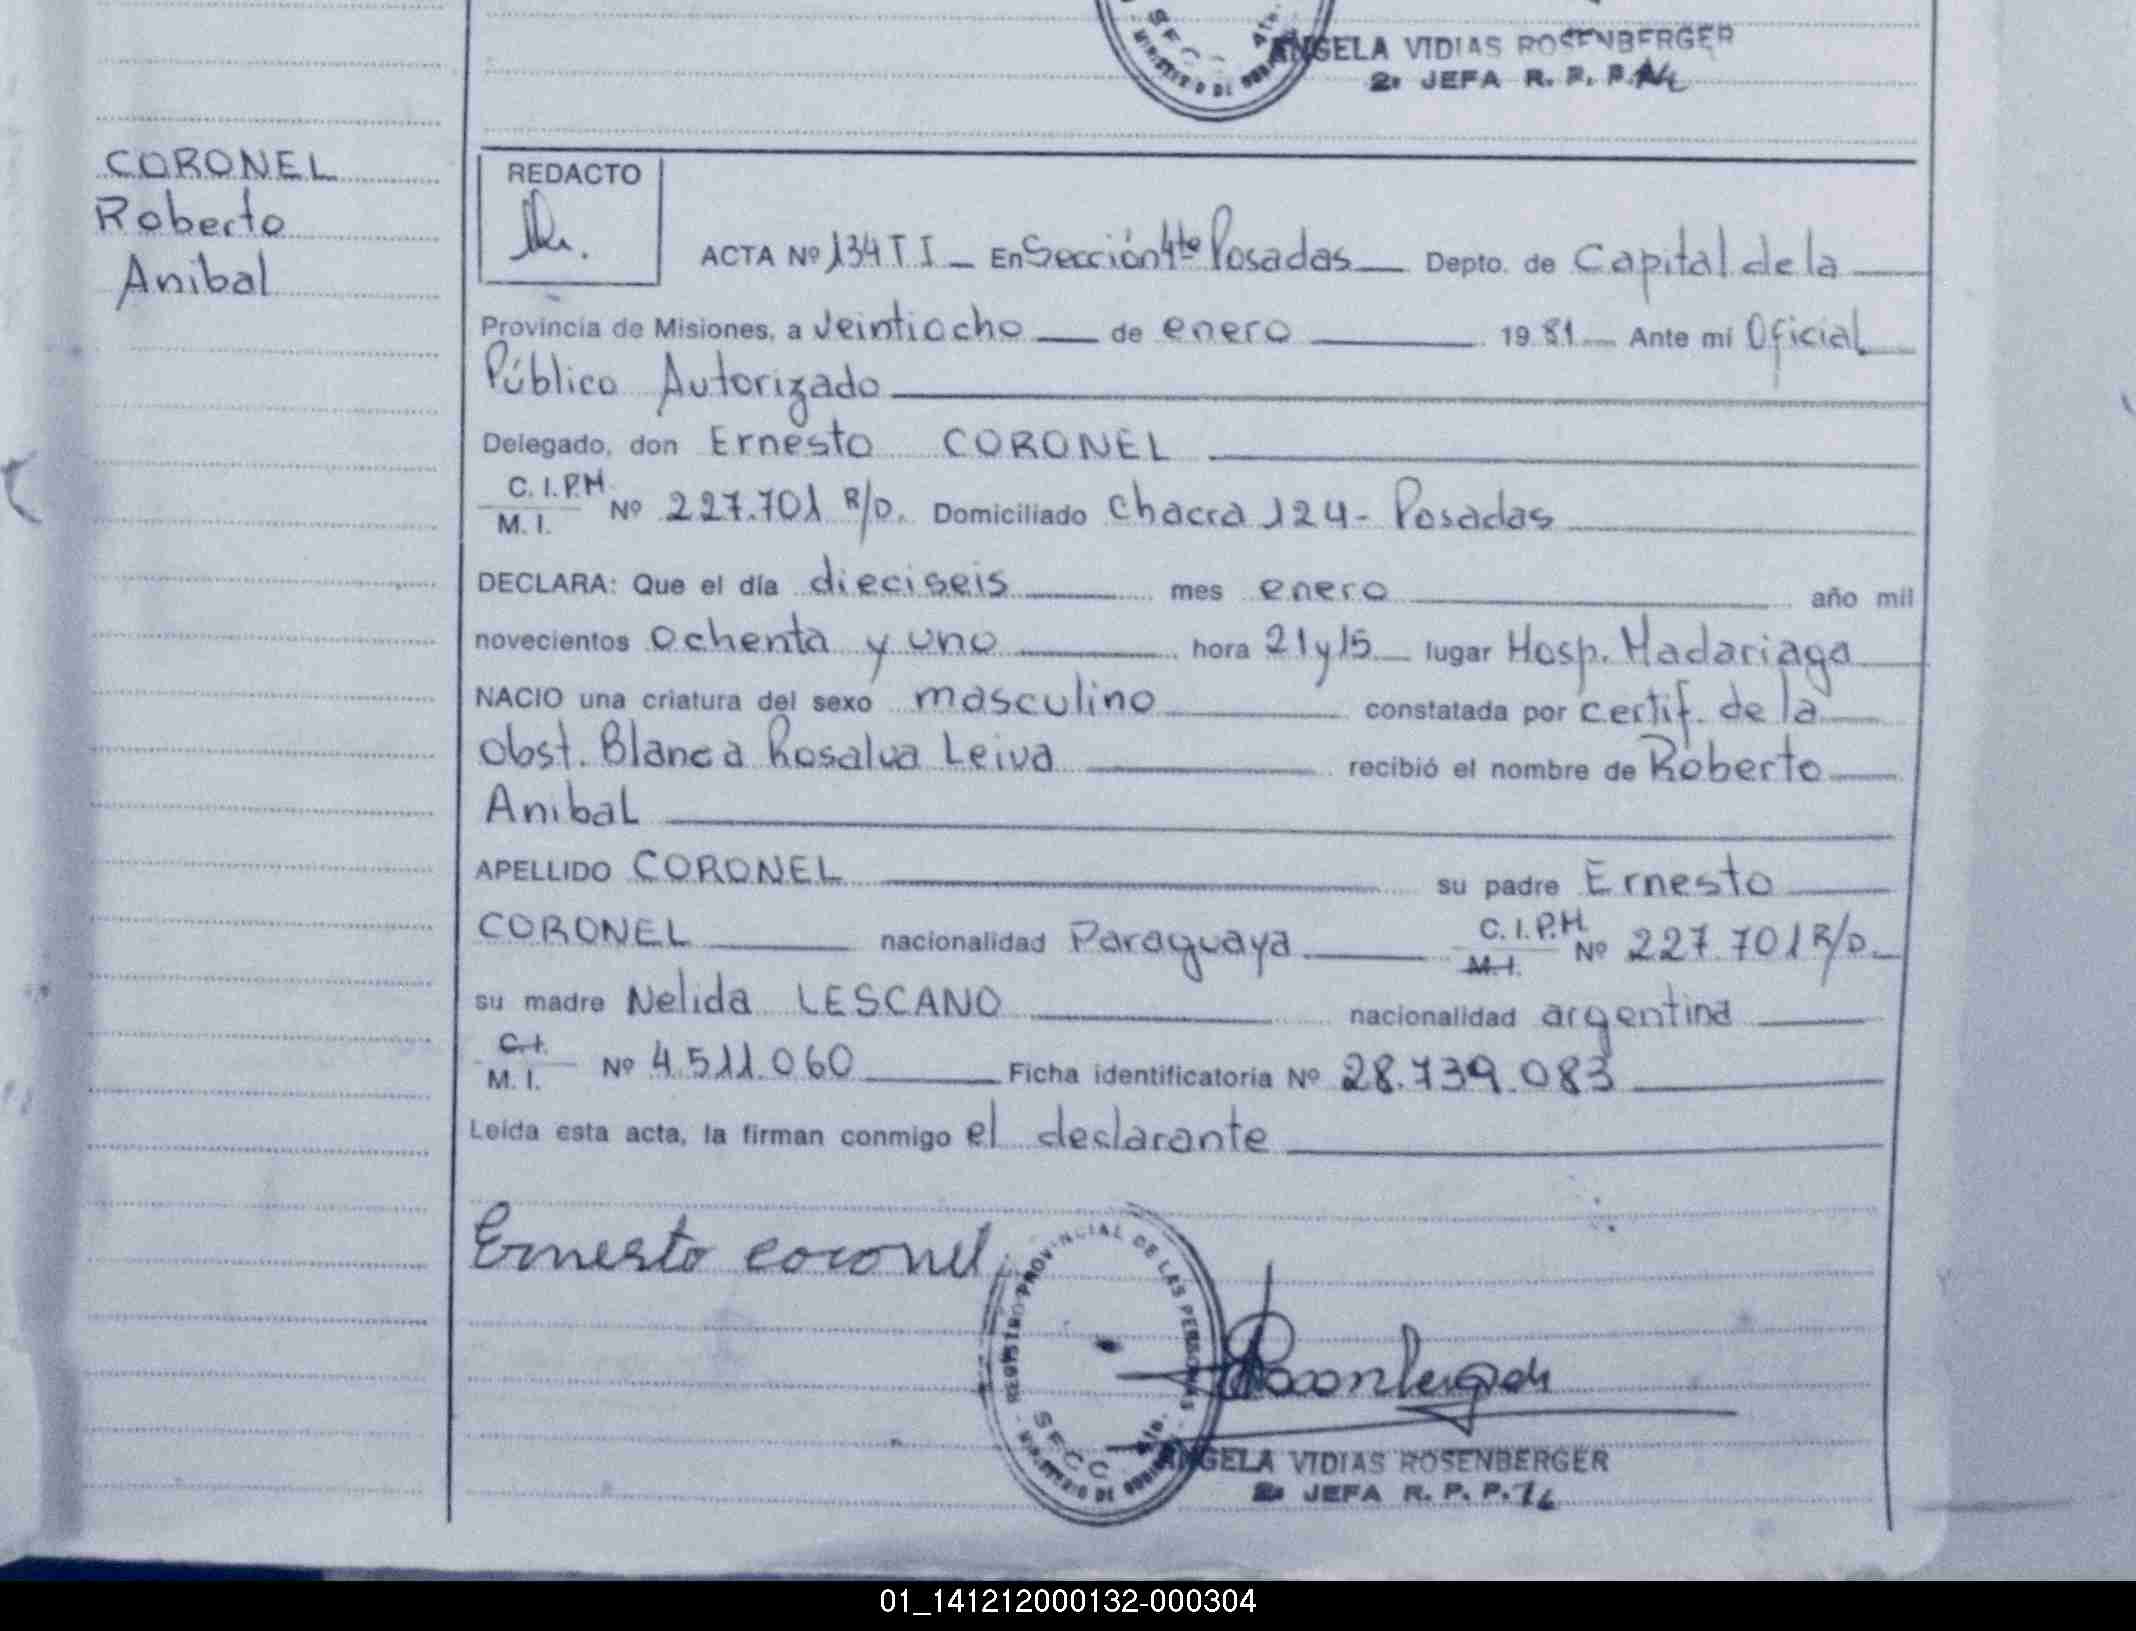 ANGELA VIDIAS ROSENBERGER
2a JEFA R. P. P.
CORONEL
Roberto
Anibal
REDACTO
ACTA Nº 134 T I — En Sección 4ta Posadas — Depto. de Capital de la
Provincia de Misiones, a veintiocho — de enero — 1981 — Ante mí Oficial
Público Autorizado
Delegado, don Ernesto CORONEL
C. I. P.M.
M. I. Nº 227.701 R/D. Domiciliado Chacra 124 - Posadas
DECLARA: Que el día dieciseis mes enero año mil
novecientos ochenta y uno hora 21 y 15 lugar Hosp. Madariaga
NACIO una criatura del sexo masculino constatada por certif. de la
Obst. Blanca Rosalva Leiva recibió el nombre de Roberto
Anibal
APELLIDO CORONEL su padre Ernesto
CORONEL nacionalidad Paraguaya C. I. P.M.
M. I. Nº 227.701 R/D.
su madre Nelida LESCANO nacionalidad argentina
C. I.
M. I. Nº 4.511.060 Ficha identificatoria Nº 28.739.083
Leída esta acta, la firman conmigo el declarante
Ernesto coronel
REGISTRO PROVINCIAL DE LAS PERSONAS
MINISTERIO DE
ANGELA VIDIAS ROSENBERGER
2a JEFA R. P. P.
01_141212000132-000304